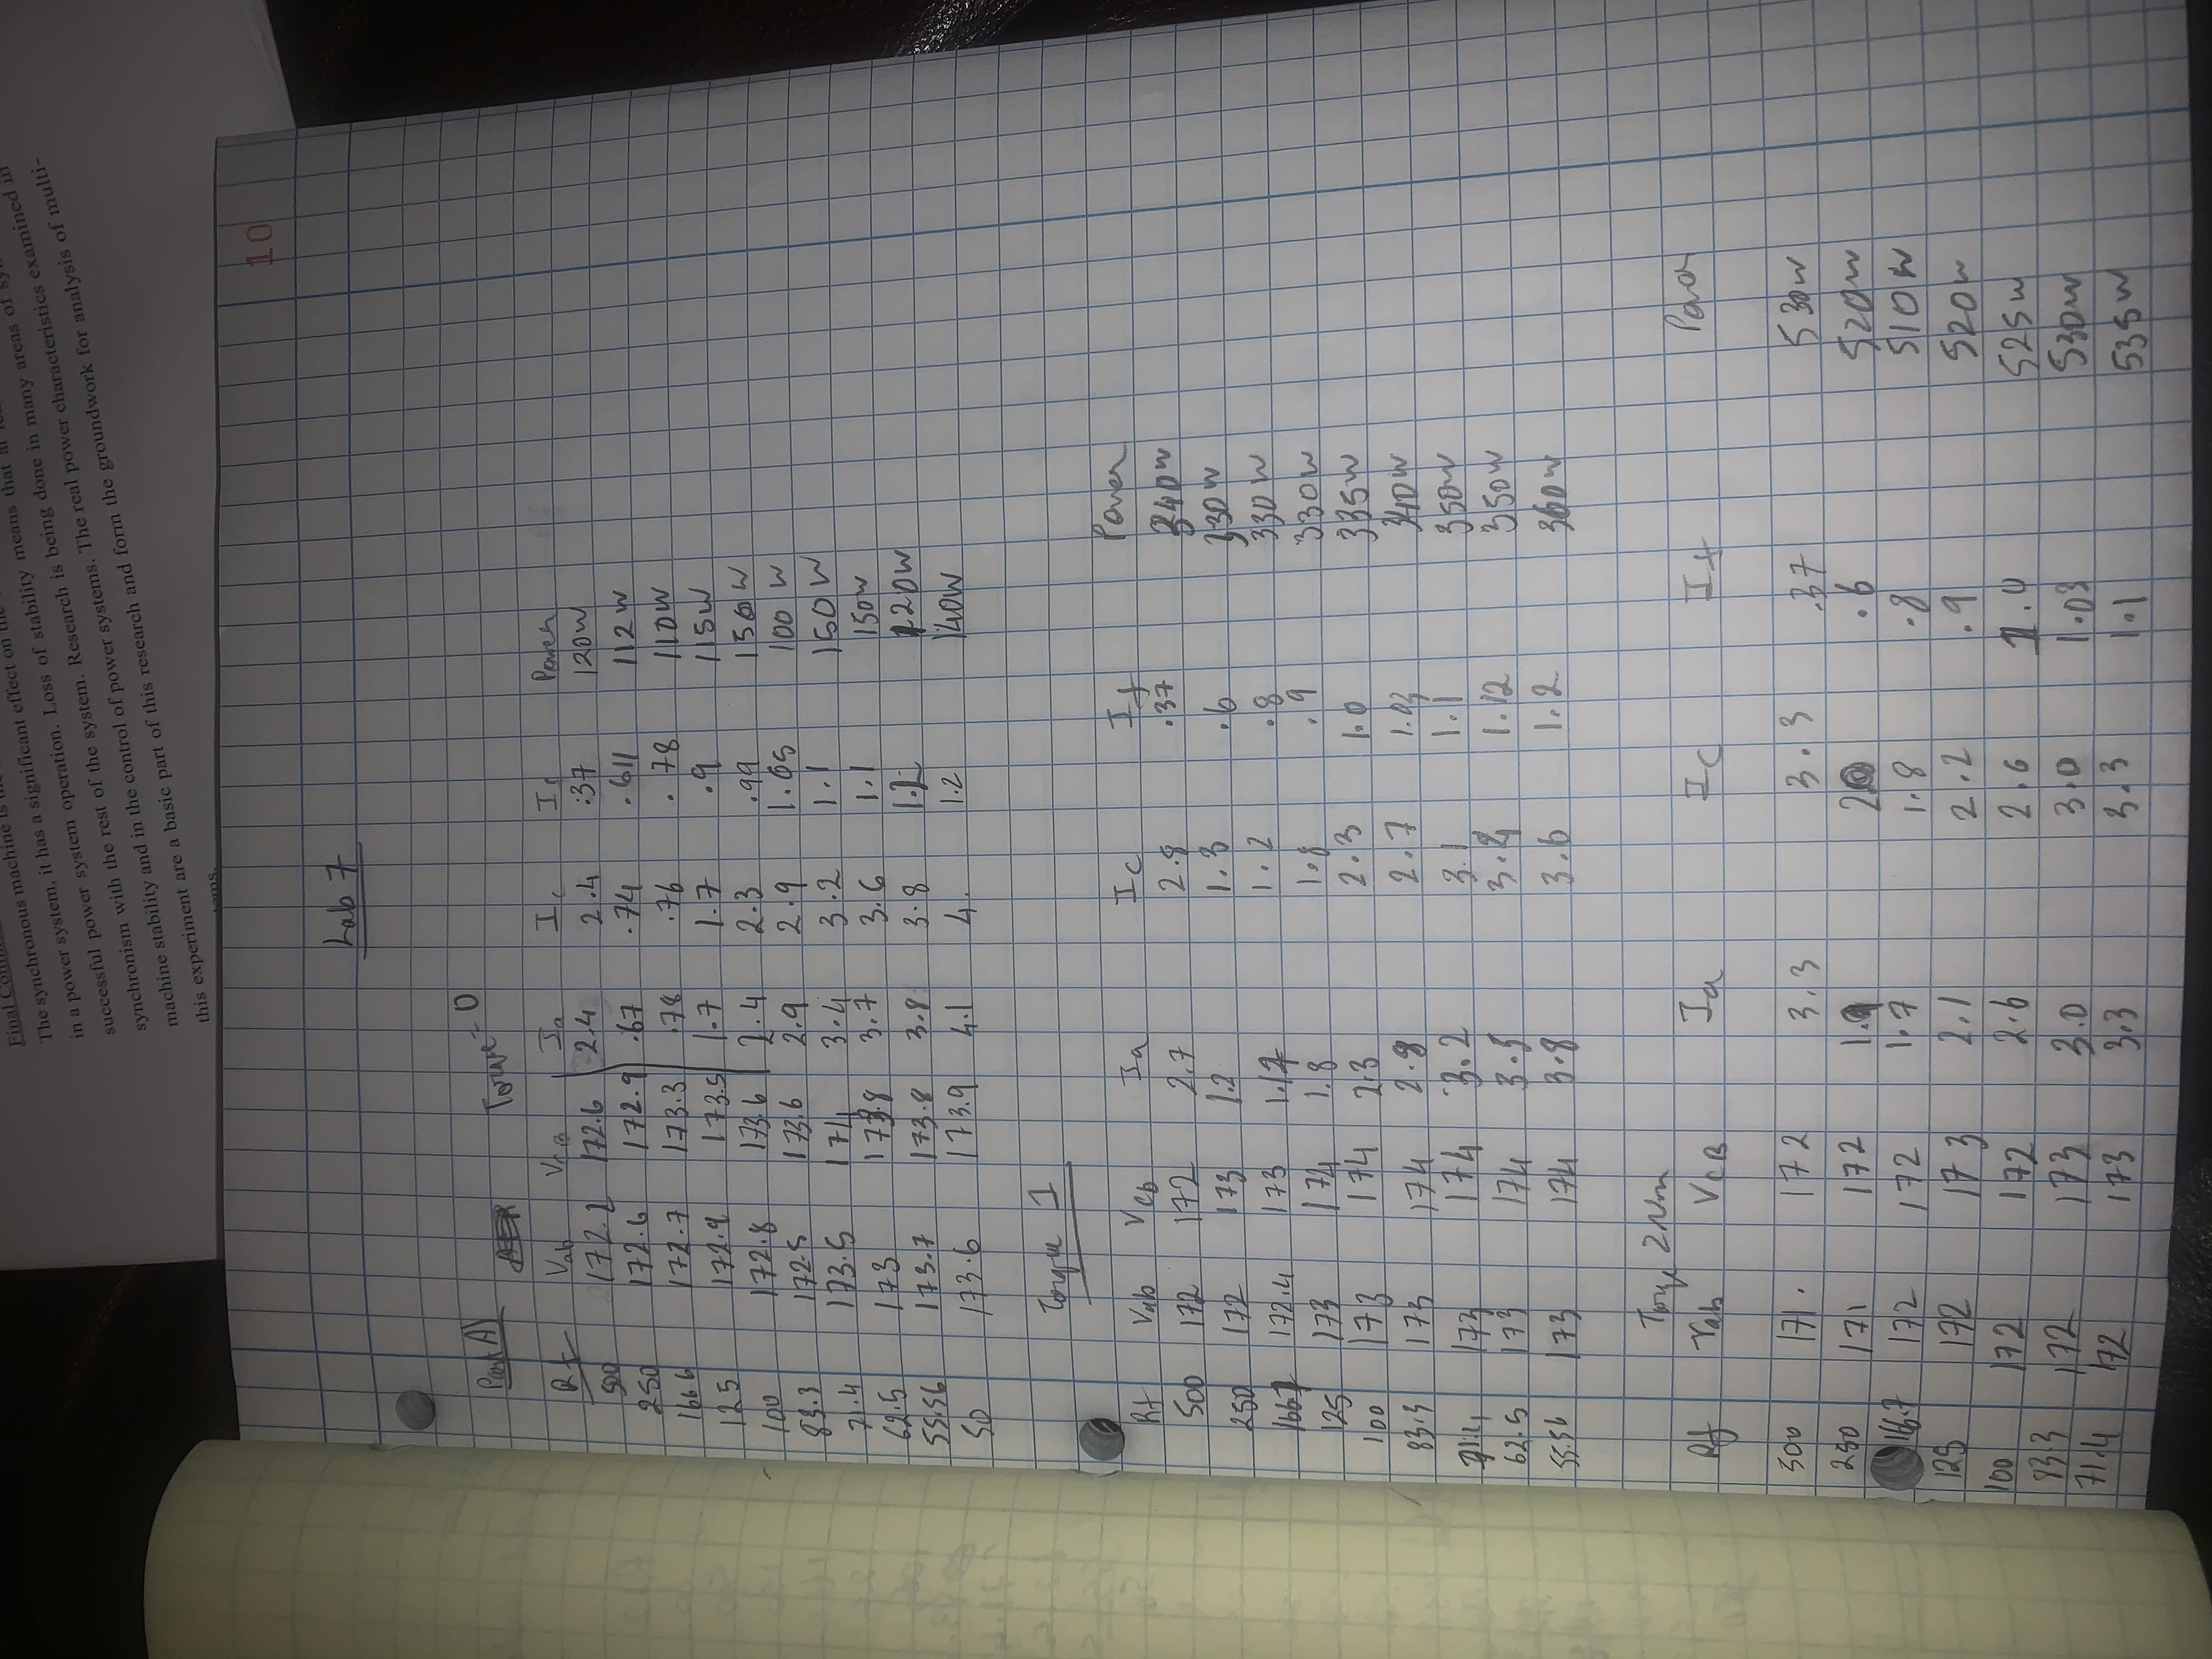 Final
The synchronous machine is
in a power system, it has a significant effect on the
successful power system operation. Loss of stability means that at
synchronism with the rest of the system. Research is being done in many areas of
machine stability and in the control of power systems. The real power characteristics examined in
this experiment are a basic part of this research and form the groundwork for analysis of multi-
10
Lab 7
Part A)
Torque = 0
Rf Vab VCB Ia Ic If Power
500 172.2 172.6 2.4 2.4 .37 120W
250 172.6 172.9 .67 .74 .611 112W
166.6 172.7 173.3 .78 .76 .78 110W
125 172.9 173.5 1.7 1.7 .9 115W
100 172.8 173.6 2.4 2.3 .99 150W
83.3 172.5 173.6 2.9 2.9 1.05 100W
71.4 173.5 174 3.4 3.2 1.1 150W
62.5 173 173.8 3.7 3.6 1.1 150W
55.56 173.7 173.8 3.8 3.8 1.2 120W
50 173.6 173.9 4.1 4. 1.2 140W
Torque 1
Rf Vab Vcb Ia Ic If Power
500 172 172 2.7 2.8 .37 340W
250 172 173 1.2 1.3 .6 330W
166.7 172.4 173 1.17 1.2 .8 330W
125 173 174 1.8 1.8 .9 330W
100 173 174 2.3 2.3 1.0 335W
83.3 173 174 2.8 2.7 1.03 340W
71.4 173 174 3.2 3.1 1.1 350W
62.5 173 174 3.5 3.4 1.12 350W
55.56 173 174 3.8 3.6 1.2 360W
Torqe 2Nm
Rf Vab VCB Ia Ic If Power
500 171. 172 3.3 3.3 .37 530W
250 171 172 1.9 20 .6 520W
166.7 172 172 1.7 1.8 .8 510W
125 172 173 2.1 2.2 .9 520W
100 172 172 2.6 2.6 1.0 525W
83.3 172 173 3.0 3.0 1.03 530W
71.4 172 173 3.3 3.3 1.1 535W